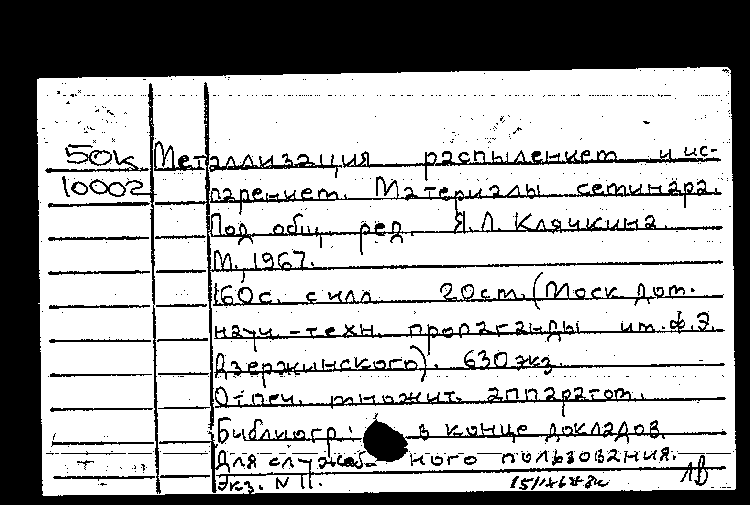 50к Металлизация распылением и ис-
10002 парением. Материалы семинара.
Под общ. ред. Я.Л. Клячкина.
М., 1967.
160с. с илл. 20см. (Моск. дом.
науч.-техн. пропаганды им. Ф.Э.
Дзержинского). 630 экз.
Отпеч. множит. аппаратом.
Библиогр.: в конце докладов.
Для служебного пользования.
Экз. N 11.
1В